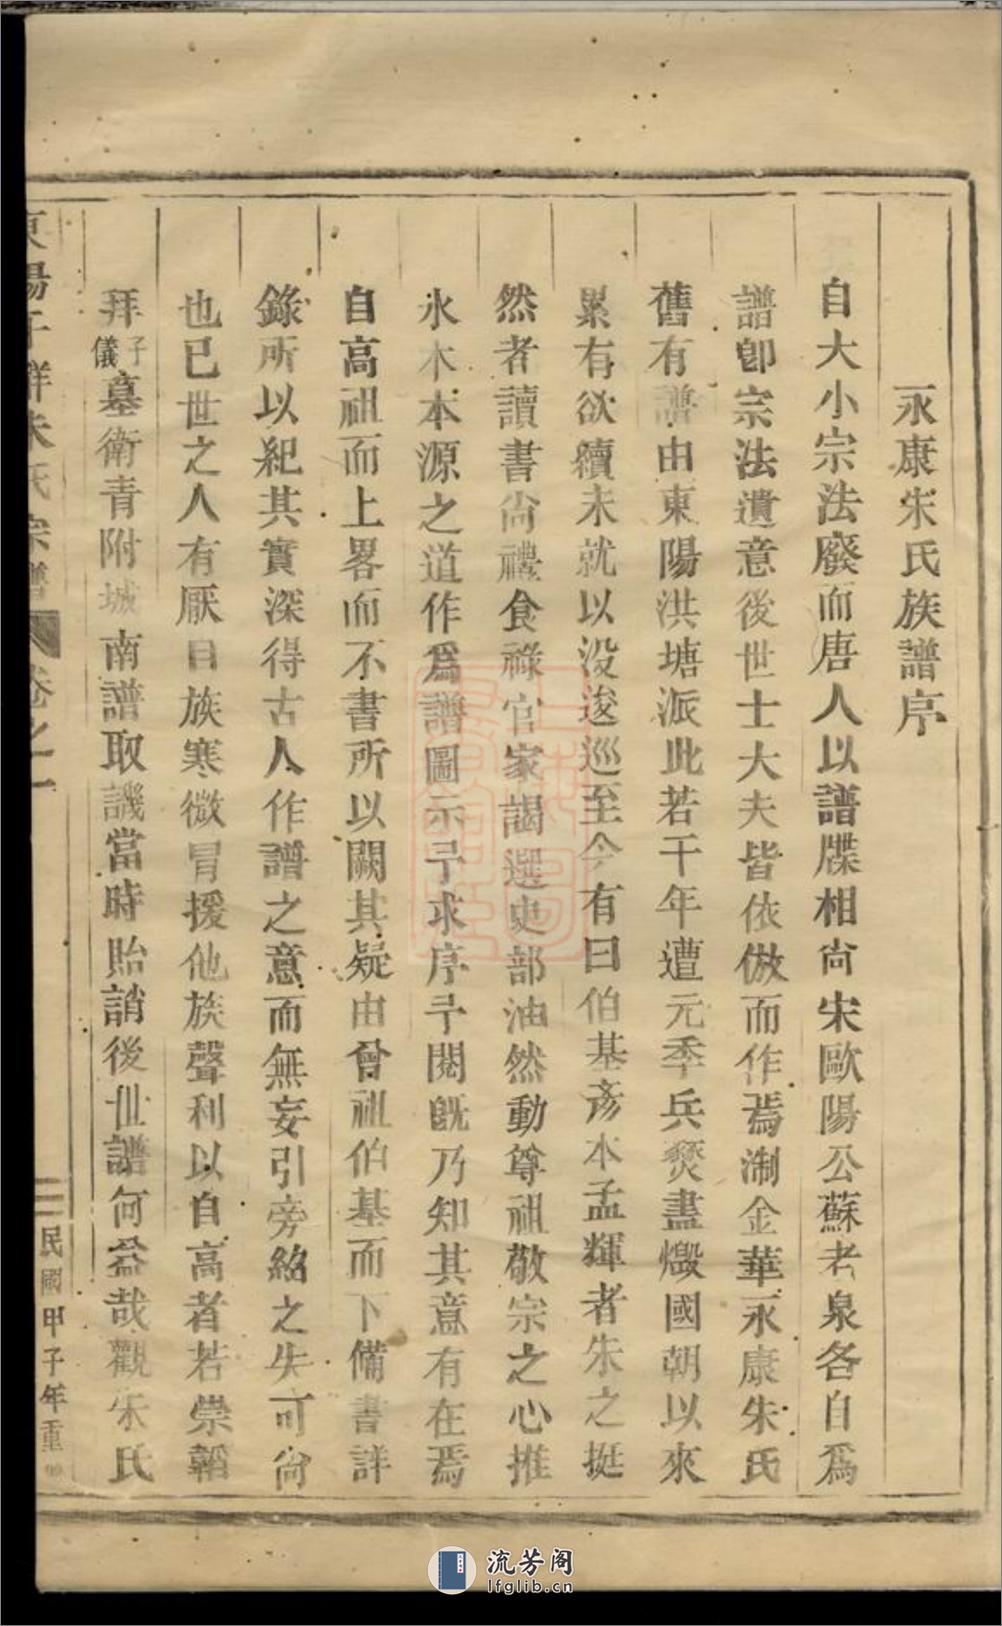 永康朱氏族譜序
自大小宗法廢而唐人以譜牒相尚宋歐陽公蘇老泉各自爲
譜卽宗法遺意後世士大夫皆依倣而作焉淛金華永康朱氏
舊有譜由東陽洪塘派此若干年遭元季兵燹盡燬國朝以來
累有欲續未就以没逡巡至今有曰伯基彥本孟輝者朱之挺
然者讀書尚禮食祿官家謁選史部油然動尊祖敬宗之心推
水木本源之道作爲譜圖示予求序予閱旣乃知其意有在焉
自高祖而上畧而不書所以闕其疑由曾祖伯基而下備書詳
錄所以紀其實深得古人作譜之意而無妄引旁紹之失可尚
也已世之人有厭目族寒微冒援他族聲利以自高者若崇韜
拜子儀墓衛青附城南譜取譏當時貽誚後世譜何益哉觀朱氏
東陽 祥朱氏宗譜 卷之一 二 民國甲子年重
流芳阁
lfglib.cn